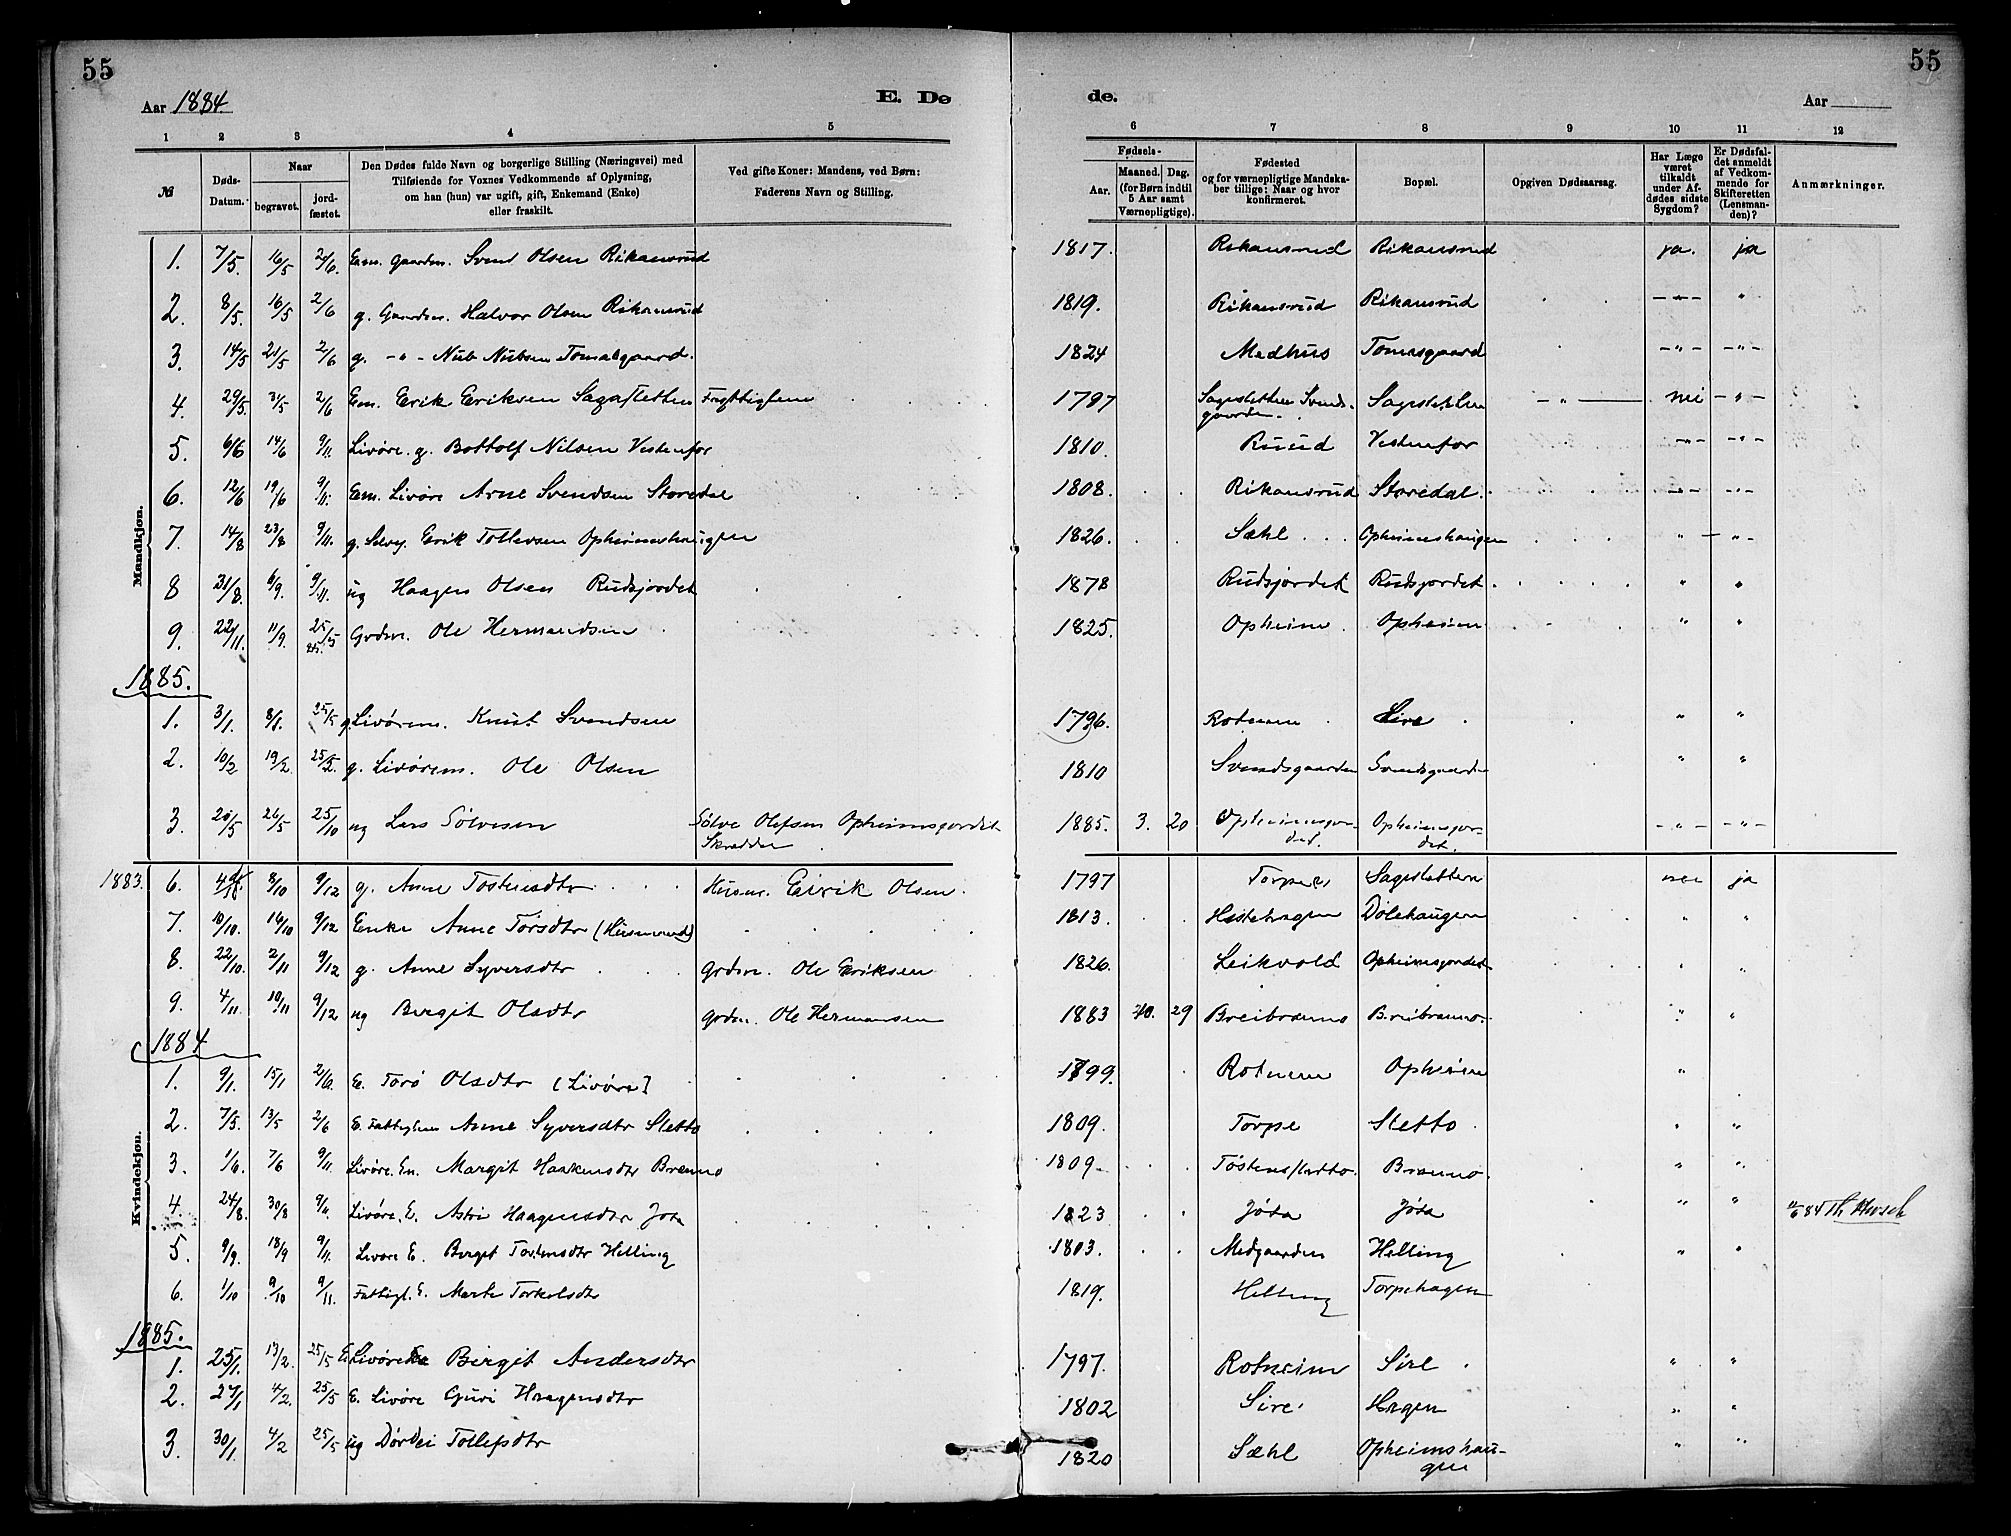 55
55
Aar 1884
E. De
de.
Aar
1 2 3 4 5
6 7 8 9 10 11 12
№
Døds-
Datum.
Naar
begravet.
jord-
fæstet.
Den Dødes fulde Navn og borgerlige Stilling (Næringsvei) med
Tilføiende for Voxnes Vedkommende af Oplysning,
om han (hun) var ugift, gift, Enkemand (Enke)
eller fraskilt.
Ved gifte Koner: Mandens, ved Børn:
Faderens Navn og Stilling.
Fødsels-
Aar.
Maaned. Dag.
(for Børn indtil
5 Aar samt
Værnepligtige).
Fødested
og for værnepligtige Mandska-
ber tillige: Naar og hvor
konfirmeret.
Bopæl.
Opgiven Dødsaarsag.
Har Læge
været
tilkaldt
under Af-
dødes sidste
Sygdom?
Er Dødsfal-
det anmeldt
af Vedkom-
mende for
Skifteretten
(Lensman-
den)?
Anmærkninger.
Mandkjøn.
1. 7/5. 16/5 2/6. Em. Gaardm. Svend Olsen Rikansrud 1817. Rikansrud Rikansrud ja. ja
2. 8/5. 16/5 2/6 g. Gaardm. Halvor Olsen Rikansrud 1819. Rikansrud Rikansrud -"- "
3. 14/5 21/5 2/6 g. -"- Nub Nubsen Tomasgaard. 1824 Medhus Tomasgaard -"- -"-
4. 29/5. 31/5 2/6 Em. Erik Eriksen Sagasletten Fattiglem 1797 Sagesletten Svends-
gaarden. Sagesletten -"- nei -"-
5. 6/6 14/6 9/11. Livøre. g. Bottolf Nilsen Vestenfor 1810. Ruud Vestenfor -"- -"-
6. 12/6 19/6 9/11. Em. Livøre Arne Svendsen Storedal 1808. Rikansrud Storedal. -"- -"-
7. 14/8 23/8 9/11. g. Selvej. Erik Tollevsen Opheimshaugen 1826. Sæhl Opheimshaugen " -"-
8 31/8. 6/9. 9/11. ug Haagen Olsen Rudsjordet 1878 Rudsjordet Rudsjordet. " "
9. 22/11. 11/9. 25/5 85. Grdm. Ole Hermandsen 1825. Opheim Opheim " "
1885.
1. 3/1. 8/1. 25/5 g. Livørem. Knut Svendsen 1796. Rotneim Sire " "
2. 10/2 19/2. 25/5. g. Livørem. Ole Olsen 1810 Svendsgaarden Svendsgaarden " "
3. 20/5 26/5 25/10 ug Lars Sølvesen Sølve Olefsen Opheimsjordet
Skrædder 1885. 3. 20 Opheimsjor-
det. Opheimsjor-
det. -"- -"-
Kvindekjøn.
1883. 6. 8/10 9/12 g. Anne Tostensdtr Husm. Eirik Olsen. 1797 Torpe Sagesletten nei ja
7. 10/10. 16/10 9/12 Enke Anne Torsdtr (Husmand) 1813. Hestehagen Dølehaugen " "
8. 22/10. 2/11 9/12 g. Anne Syversdtr Grdm. Ole Eriksen 1826. Leikvold Opheimsjordet " "
9. 4/11. 10/11 9/12 ug Birgit Olsdtr Grdm. Ole Hermansen 1883 10. 29 Breibrænno Breibrænno. " "
1884
1. 9/1. 15/1 2/6. E. Torø Olsdtr (Livøre) 1799. Rotneim Opheim "
2. 7/5. 13/5 2/6 E. Fattiglem Anne Syversdtr Sletto 1809. Torpe Sletto. " "
3. 1/6. 7/6 9/11. Livøre. En. Margit Haakensdtr Brænno 1809. Tostensletto. Brænno. " "
4. 24/8. 30/8 9/11. Livøre. E. Astri Haagensdtr Jota 1823 Jøta Jøta " " 84 Th
5. 9/9. 18/9 9/11. Livøre E. Birgit Tostensdtr Helling 1803. Medgaarden Helling " "
6. 1/10 9/10 9/11. Fattigl. E. Marte Torkelsdtr 1819. Helling Torpehagen " "
1885.
1. 25/1. 13/2. 25/5 E Livøre Birgit Andersdtr 1797. Rotneim Sire " "
2. 27/1 4/2. 25/5 E. Livøre Guri Haagensdtr 1802 Sire Hagen " "
3. 30/1. 4/2 25/5 ug Dørdei Tollefsdtr 1820 Sæhl Opheimshau-
gen " "